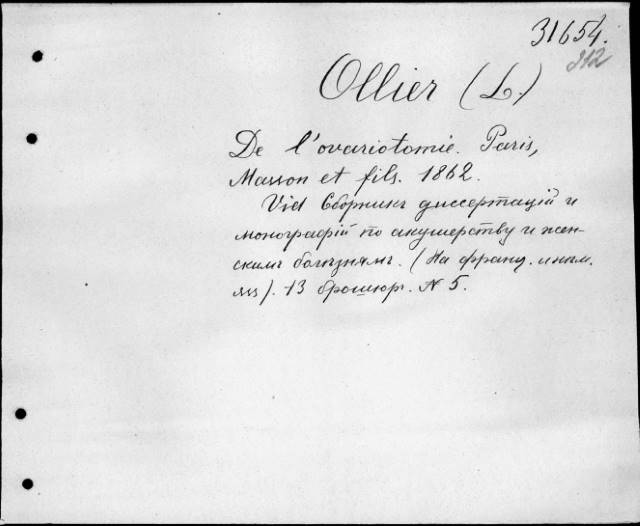 31654.
312
Ollier (L.)
De l'ovariotomie. Paris,
Masson et fils. 1862.
Vid Сборникъ диссертацій и
монографій по акушерству и жен-
скимъ болѣзнямъ. (На франц. и нѣм.
яз). 13 брошюр. N 5.